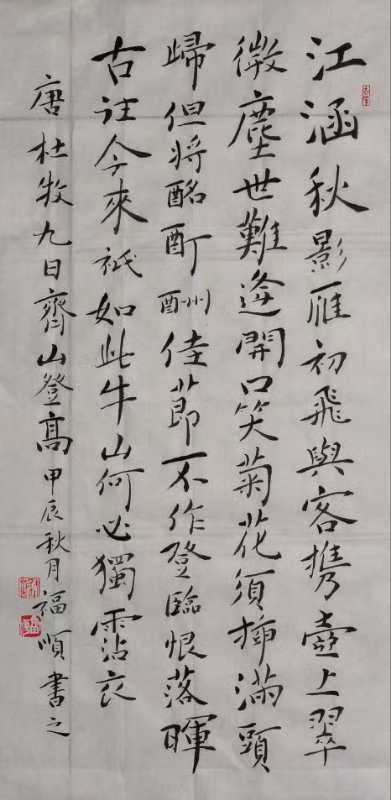 江涵秋影雁初飛與客携壺上翠
微塵世難逢開口笑菊花須插滿頭
歸但將酩酊酬佳節不作登臨恨落暉
古往今來祇如此牛山何必獨霑衣
唐杜牧九日齊山登高甲辰秋月福順書之